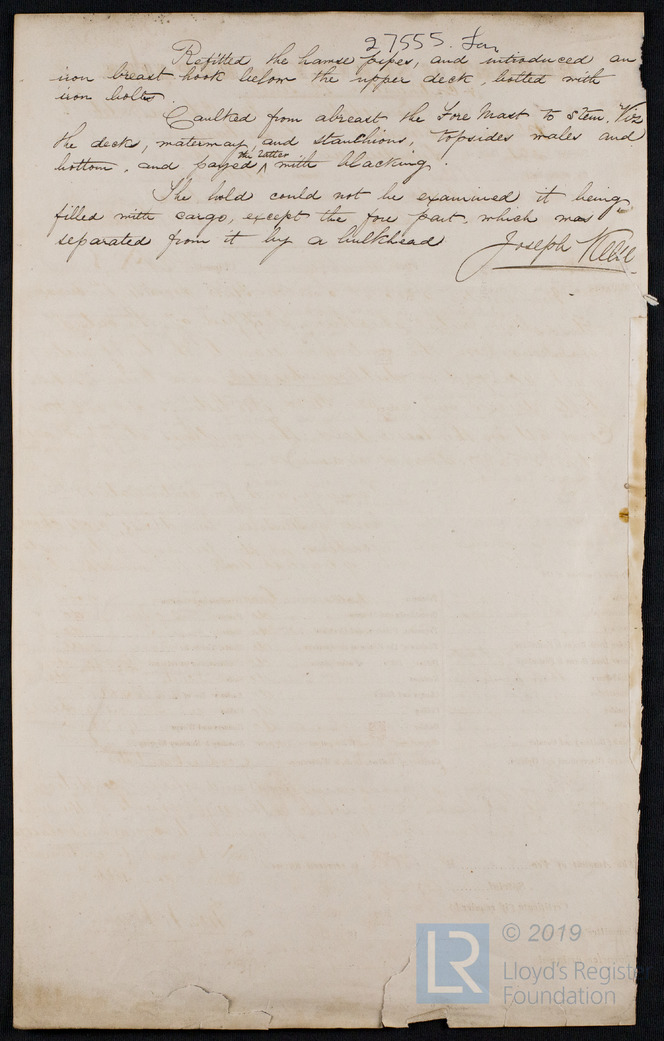 27555. Iron
Refitted the hawse pipes, and introduced an
iron breast hook below the upper deck, bolted with
iron bolts.
Caulked from abreast the Fore Mast to Stem, Viz
the decks, waterway, and stanchions, topsides wales and
bottom, and payed the latter with blacking.
The hold could not be examined it being
filled with cargo, except the fore part, which was
separated from it by a bulkhead
Joseph
© 2019
LR
Lloyd's Register
Foundation